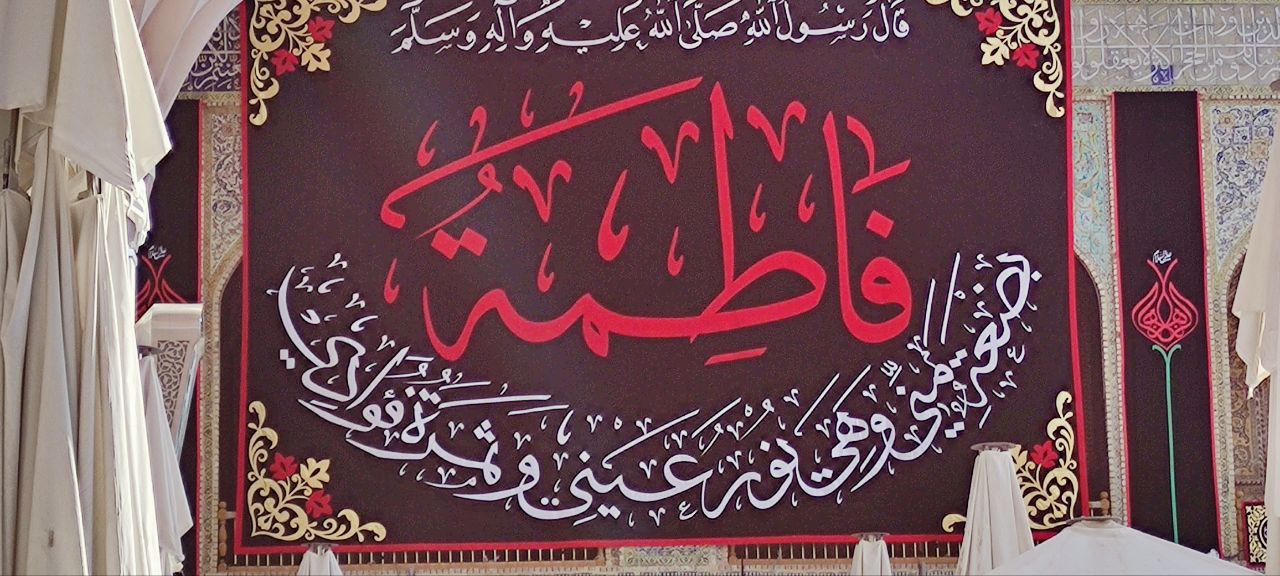 قَالَ رَسُولُ اللهِ صَلَّى اللهُ عَلَيْهِ وَآلِهِ وَسَلَّمَ
فَاطِمَةُ
بِضْعَةٌ مِنِّي وَهِيَ نُورُ عَيْنِي وَثَمَرَةُ فُؤَادِي